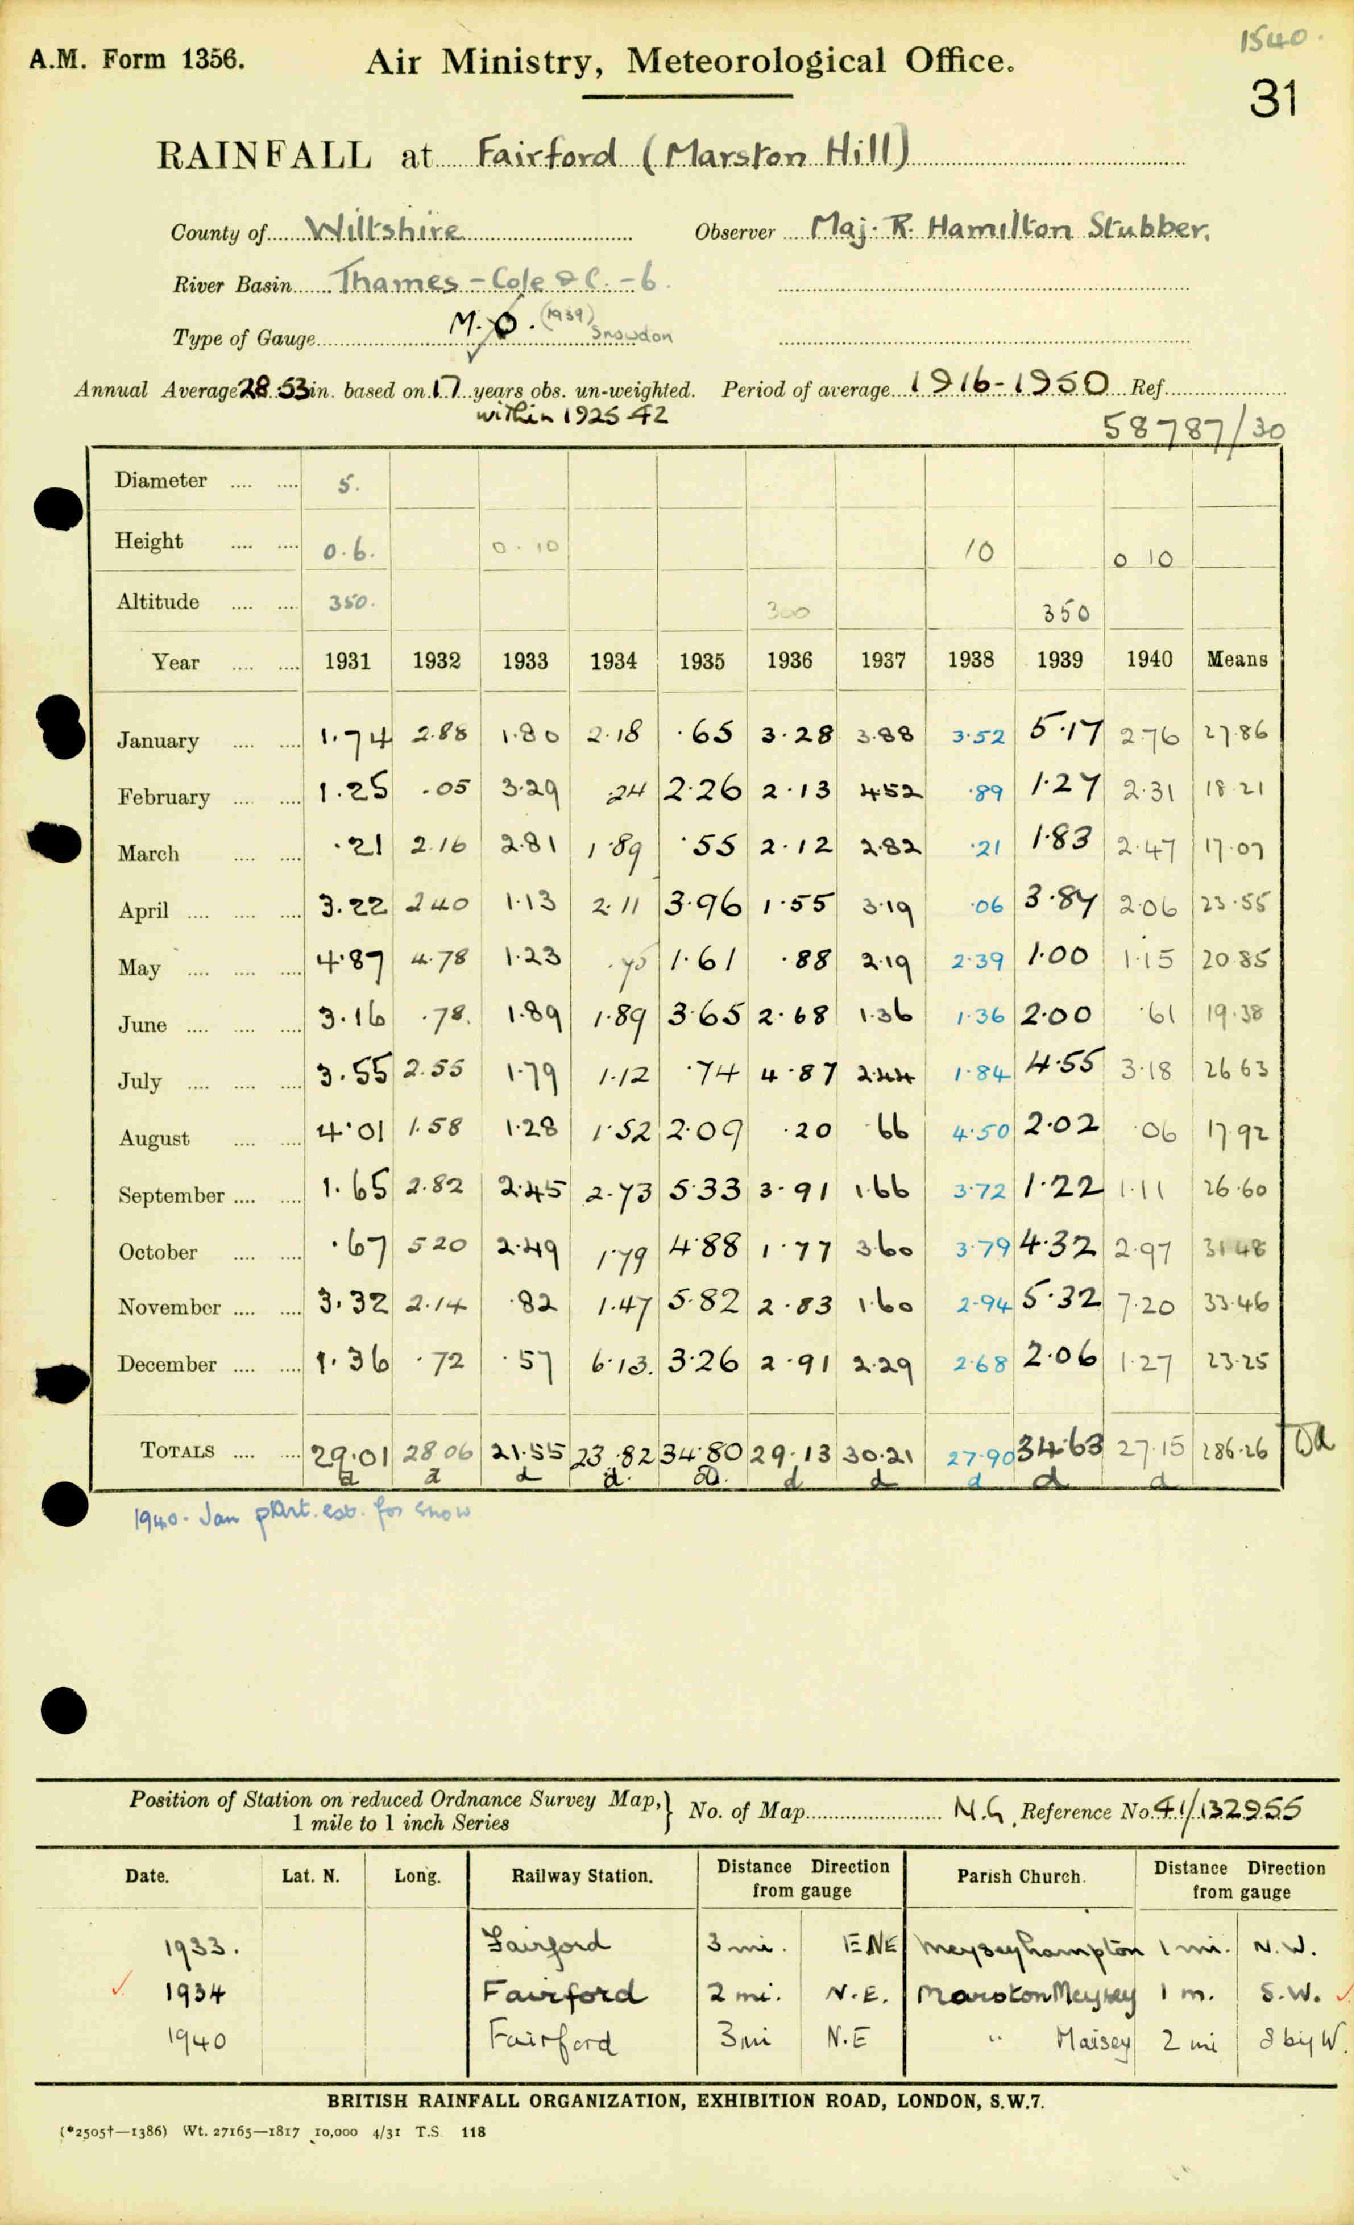 1540.
A.M. Form 1356.
Air Ministry, Meteorological Office.
31
RAINFALL at Fairford (Marston Hill)
County of Wiltshire Observer Maj. R. Hamilton Stubber.
River Basin Thames - Cole & C. - 6.
Type of Gauge M.O. (1939) Snowdon
Annual Average 28.53 in. based on 17 years obs. un-weighted. Period of average 1916-1950 Ref.
within 1925 42
58787/30
Diameter 5.
Height 0.6. 0.10 10 0 10
Altitude 350. 300 350
Year 1931 1932 1933 1934 1935 1936 1937 1938 1939 1940 Means
January 1.74 2.88 1.80 2.18 .65 3.28 3.88 3.52 5.17 2.76 27.86
February 1.25 .05 3.29 .24 2.26 2.13 4.52 .89 1.27 2.31 18.21
March .21 2.16 2.81 1.89 .55 2.12 2.82 .21 1.83 2.47 17.07
April 3.22 2.40 1.13 2.11 3.96 1.55 3.19 .06 3.87 2.06 23.55
May 4.87 4.78 1.23 .75 1.61 .88 2.19 2.39 1.00 1.15 20.85
June 3.16 .78. 1.89 1.89 3.65 2.68 1.36 1.36 2.00 .61 19.38
July 3.55 2.55 1.79 1.12 .74 4.87 2.44 1.84 4.55 3.18 26.63
August 4.01 1.58 1.28 1.52 2.09 .20 .66 4.50 2.02 .06 17.92
September 1.65 2.82 2.45 2.73 5.33 3.91 1.66 3.72 1.22 1.11 26.60
October .67 5.20 2.49 1.79 4.88 1.77 3.60 3.79 4.32 2.97 31.48
November 3.32 2.14 .82 1.47 5.82 2.83 1.60 2.94 5.32 7.20 33.46
December 1.36 .72 .57 6.13. 3.26 2.91 2.29 2.68 2.06 1.27 23.25
TOTALS 29.01 28.06 21.55 23.82 34.80 29.13 30.21 27.90 34.63 27.15 286.26
d d d d d d d
1940. Jan part. est. for snow
Position of Station on reduced Ordnance Survey Map,} No. of Map N.G. Reference No. 41/132955
1 mile to 1 inch Series
Date. Lat. N. Long. Railway Station. Distance Direction from gauge Parish Church. Distance Direction from gauge
1933. Fairford 3 mi. ENE Meyseyhampton 1 mi. N.W.
1934 Fairford 2 mi. N.E. Marston Meysey 1 m. S.W.
1940 Fairford 3mi N.E " Maisey 2 mi S by W.
BRITISH RAINFALL ORGANIZATION, EXHIBITION ROAD, LONDON, S.W.7.
(*2505†—1386) Wt. 27165—1817 10,000 4/31 T.S. 118